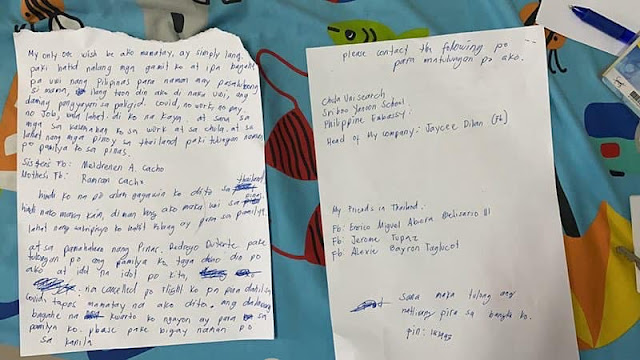 My only one wish be ako mamatay, ay simply lang
paki hatid nalang mga gamit ko at ipa bagahe
pa uwi nang Pilipinas para naman may pasalubong
si mama, ilang taon din ako di naka uwi, ang
daming pangyayari sa paligid. Covid, no work, no pay,
no Job, wala lahat. di ko na kaya. at sana sa
mga sa kasamahan ko sa work at sa chula. at sa
lahat nang mga pinoy sa thailand paki tulungan naman
po pamilya ko sa pinas.
Sisters Fb: A. Cacho
Mothers Fb: Cacho
hindi ko na po alam gagawin ko dito sa thailand
hindi nako maka kain, di man lang ako maka uwi sa pinas
lahat ang sakripisyo ko tiniis bigay para sa pamilya.
at sa pamahalaan nang Pinas. Rodrego Duterte pake
tulungan po ang pamilya ko taga davao din po
ako at idol na idol po kita,
na cancelled po flight ko pa pinas dahil sa
Covid, tapos mamatay na ako dito. ang dalawang
bagahe na kwarto ko ngayon ay para sa
pamilya ko. please pake bigay naman po
sa kanila
please contact the following po
para matulungan po ako.
Chula University
School
Philippine Embassy
Head of My company: Jaycee Dilan (fb)
My Friends in Thailand.
Fb: Enrico Miguel Abora Belisario III
Fb: Jerome Tupaz
Fb: Alovie Bayron Tagbucot
sana maka tulong ang
natirang pira sa bangko ko.
pin: